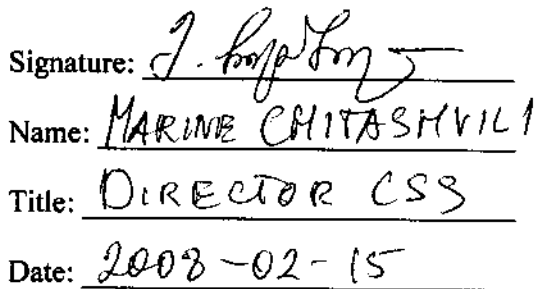 Signature:
Name: MARINE CHITASHVILI
Title: DIRECTOR CSS
Date: 2008-02-15